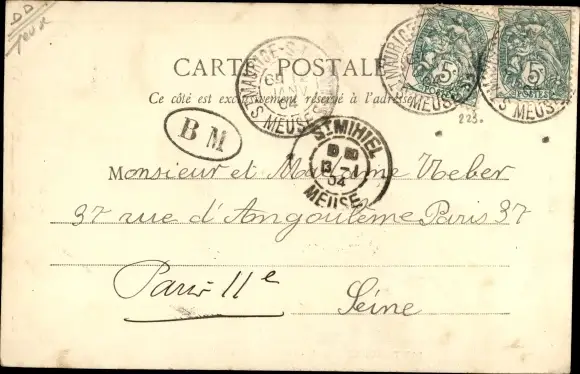 CARTE POSTALE
Ce côté est exclusivement réservé à l'adresse
MAURICE-S
JANV
04
MEUSE
5
POSTES
5
POSTES
MAURICE-S
MEUSE
223.
B M
ST MIHIEL
13 -1
04
MEUSE
Monsieur et Madame Veber
37 rue d'Angoulême Paris 37
Paris 11e
Seine